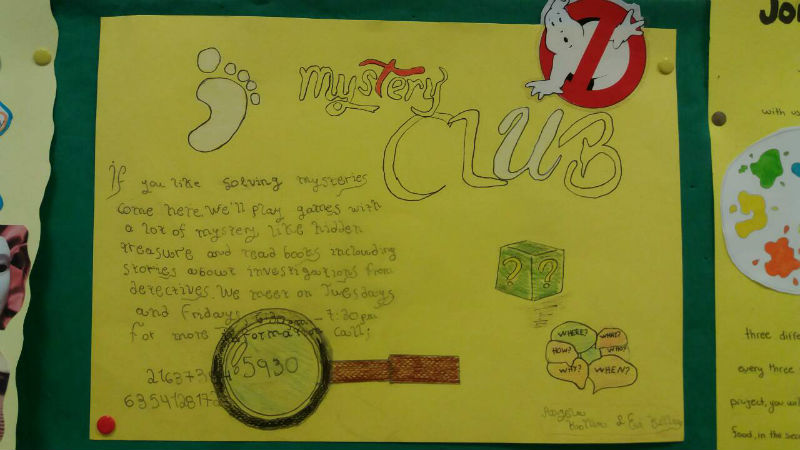 mystery
CLUB
If you like solving mysteries
come here. We'll play games with
a lot of mystery, like hidden
treasure and read books inclouding
stories about investigations from
detectives. We meet on Tuesdays
and Fridays 7:30pm
For more information call:
5930
? ?
WHERE? WHAT?
HOW? WHO?
WHY? WHEN?
& Evi
Joi
with us
three diffe
every three
project, you wil
food, in the seco